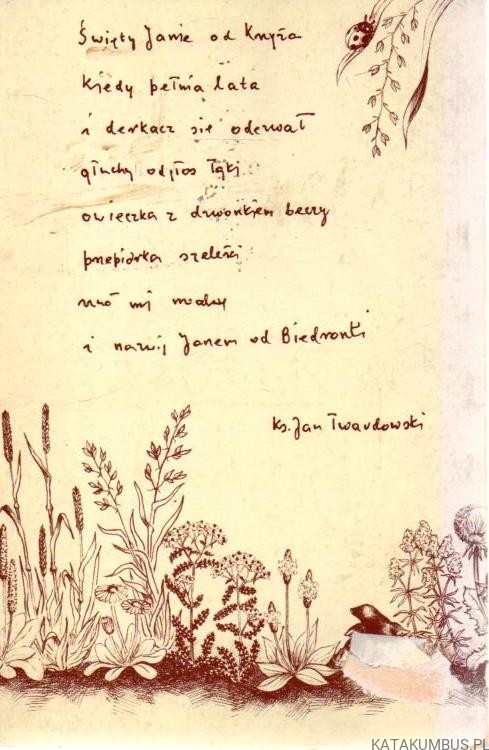 Święty Janie od Krzyża
kiedy pełnia lata
i derkacz się oderwał
głuchy odgłos łąki
owieczka z dzwonkiem beczy
przepiórka szeleści
włó mi
i nazwij Janem od Biedronki
ks. Jan Twardowski
KATAKUMBUS.PL